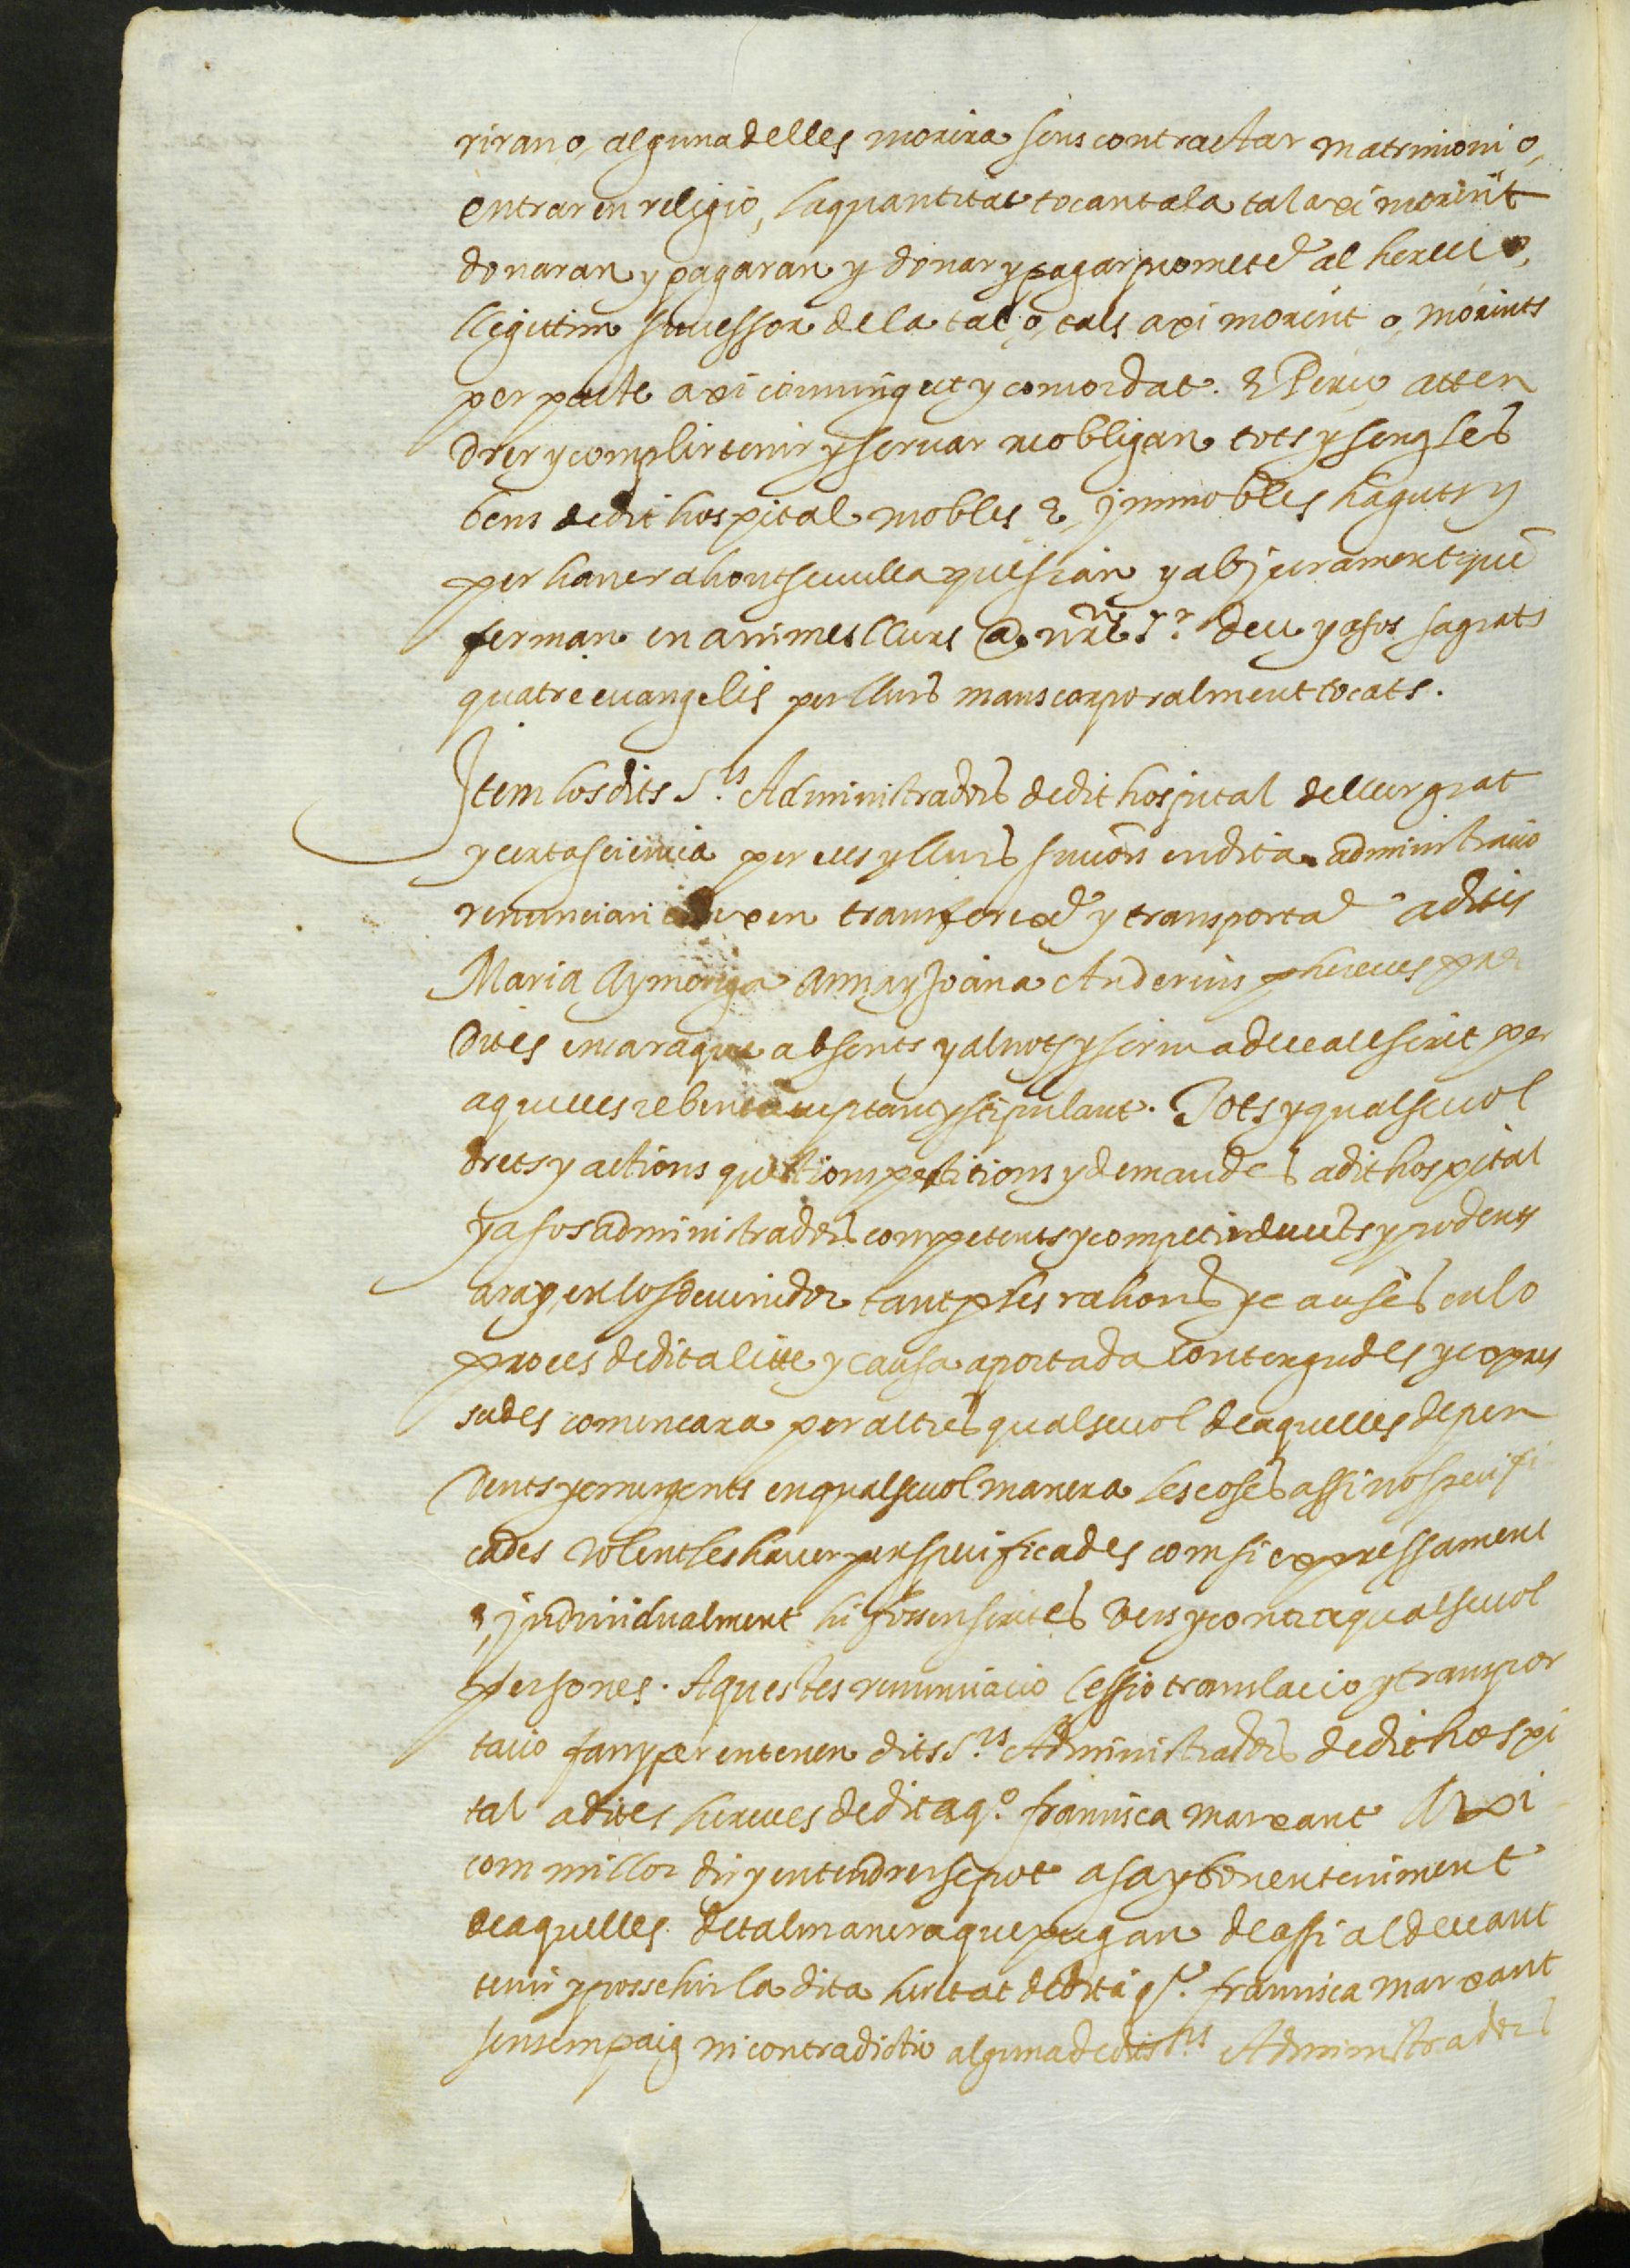 riran o, alguna delles morira sens contractar matrimoni o,
entrar en religio, la quantitat tocant a la tal axi morint
donaran y pagaran y donar y pagar prometẽ al hereu o,
llegittim successor de la tal o, tals axi morint o, morints
per pacte axi convingut y concordat. E Per ço atten
drer y complir tenir y servar ne obligan tots y sengles
bens de dit hospital mobles e, immobles haguts y
per haver ahontsevulla que sian y ab jurament que
ferman en animes llurs a nr̃e Sr. deu y a sos sagrats
quatre evangelis per llurs mans corporalment tocats.
Item los dits Srs. Administradors de dit hospital de llur grat
y certa sciencia per ells y llurs succrs̃ en dita administracio
renuncian cedexen transferexẽ y transportã a dites
Maria Aymeriga Anna y Joana Anderius hereves pre
dites encara que absents y al not y scriva devall escrit per
aquelles rebent acceptant y stipulant. Tots y qualsevol
drets y actions questions petitions y demandes a dit hospital
y a sos administradors competents y competir devents y podents
ara y, en lo sdevenidor tant p les rahons y causes en lo
proces de dita litte y causa aportada contengudes y expres
sades com encara per altres qualsevol de aquelles depen
dents y emergents en qualsevol manera les coses assi no specifi
cades volentles haver per specificades com si expressament
e, individualment hi fossen scrites vers y contra qualsevol
persones. Aquestes renunciacio cessio translacio y transpor
tacio fan y per entenen dits Srs. Administradors de dit hospi
tal a dites hereves de dita qº. francisca marxant Axi
com millor dir y entendrerse pot a sa y bon enteniment
de aquelles. de tal manera que pugan de assi al devant
tenir y possehir la dita heretat de dita qº. francisca marxant
sens empaig ni contradictio alguna de dits Srs Administradors